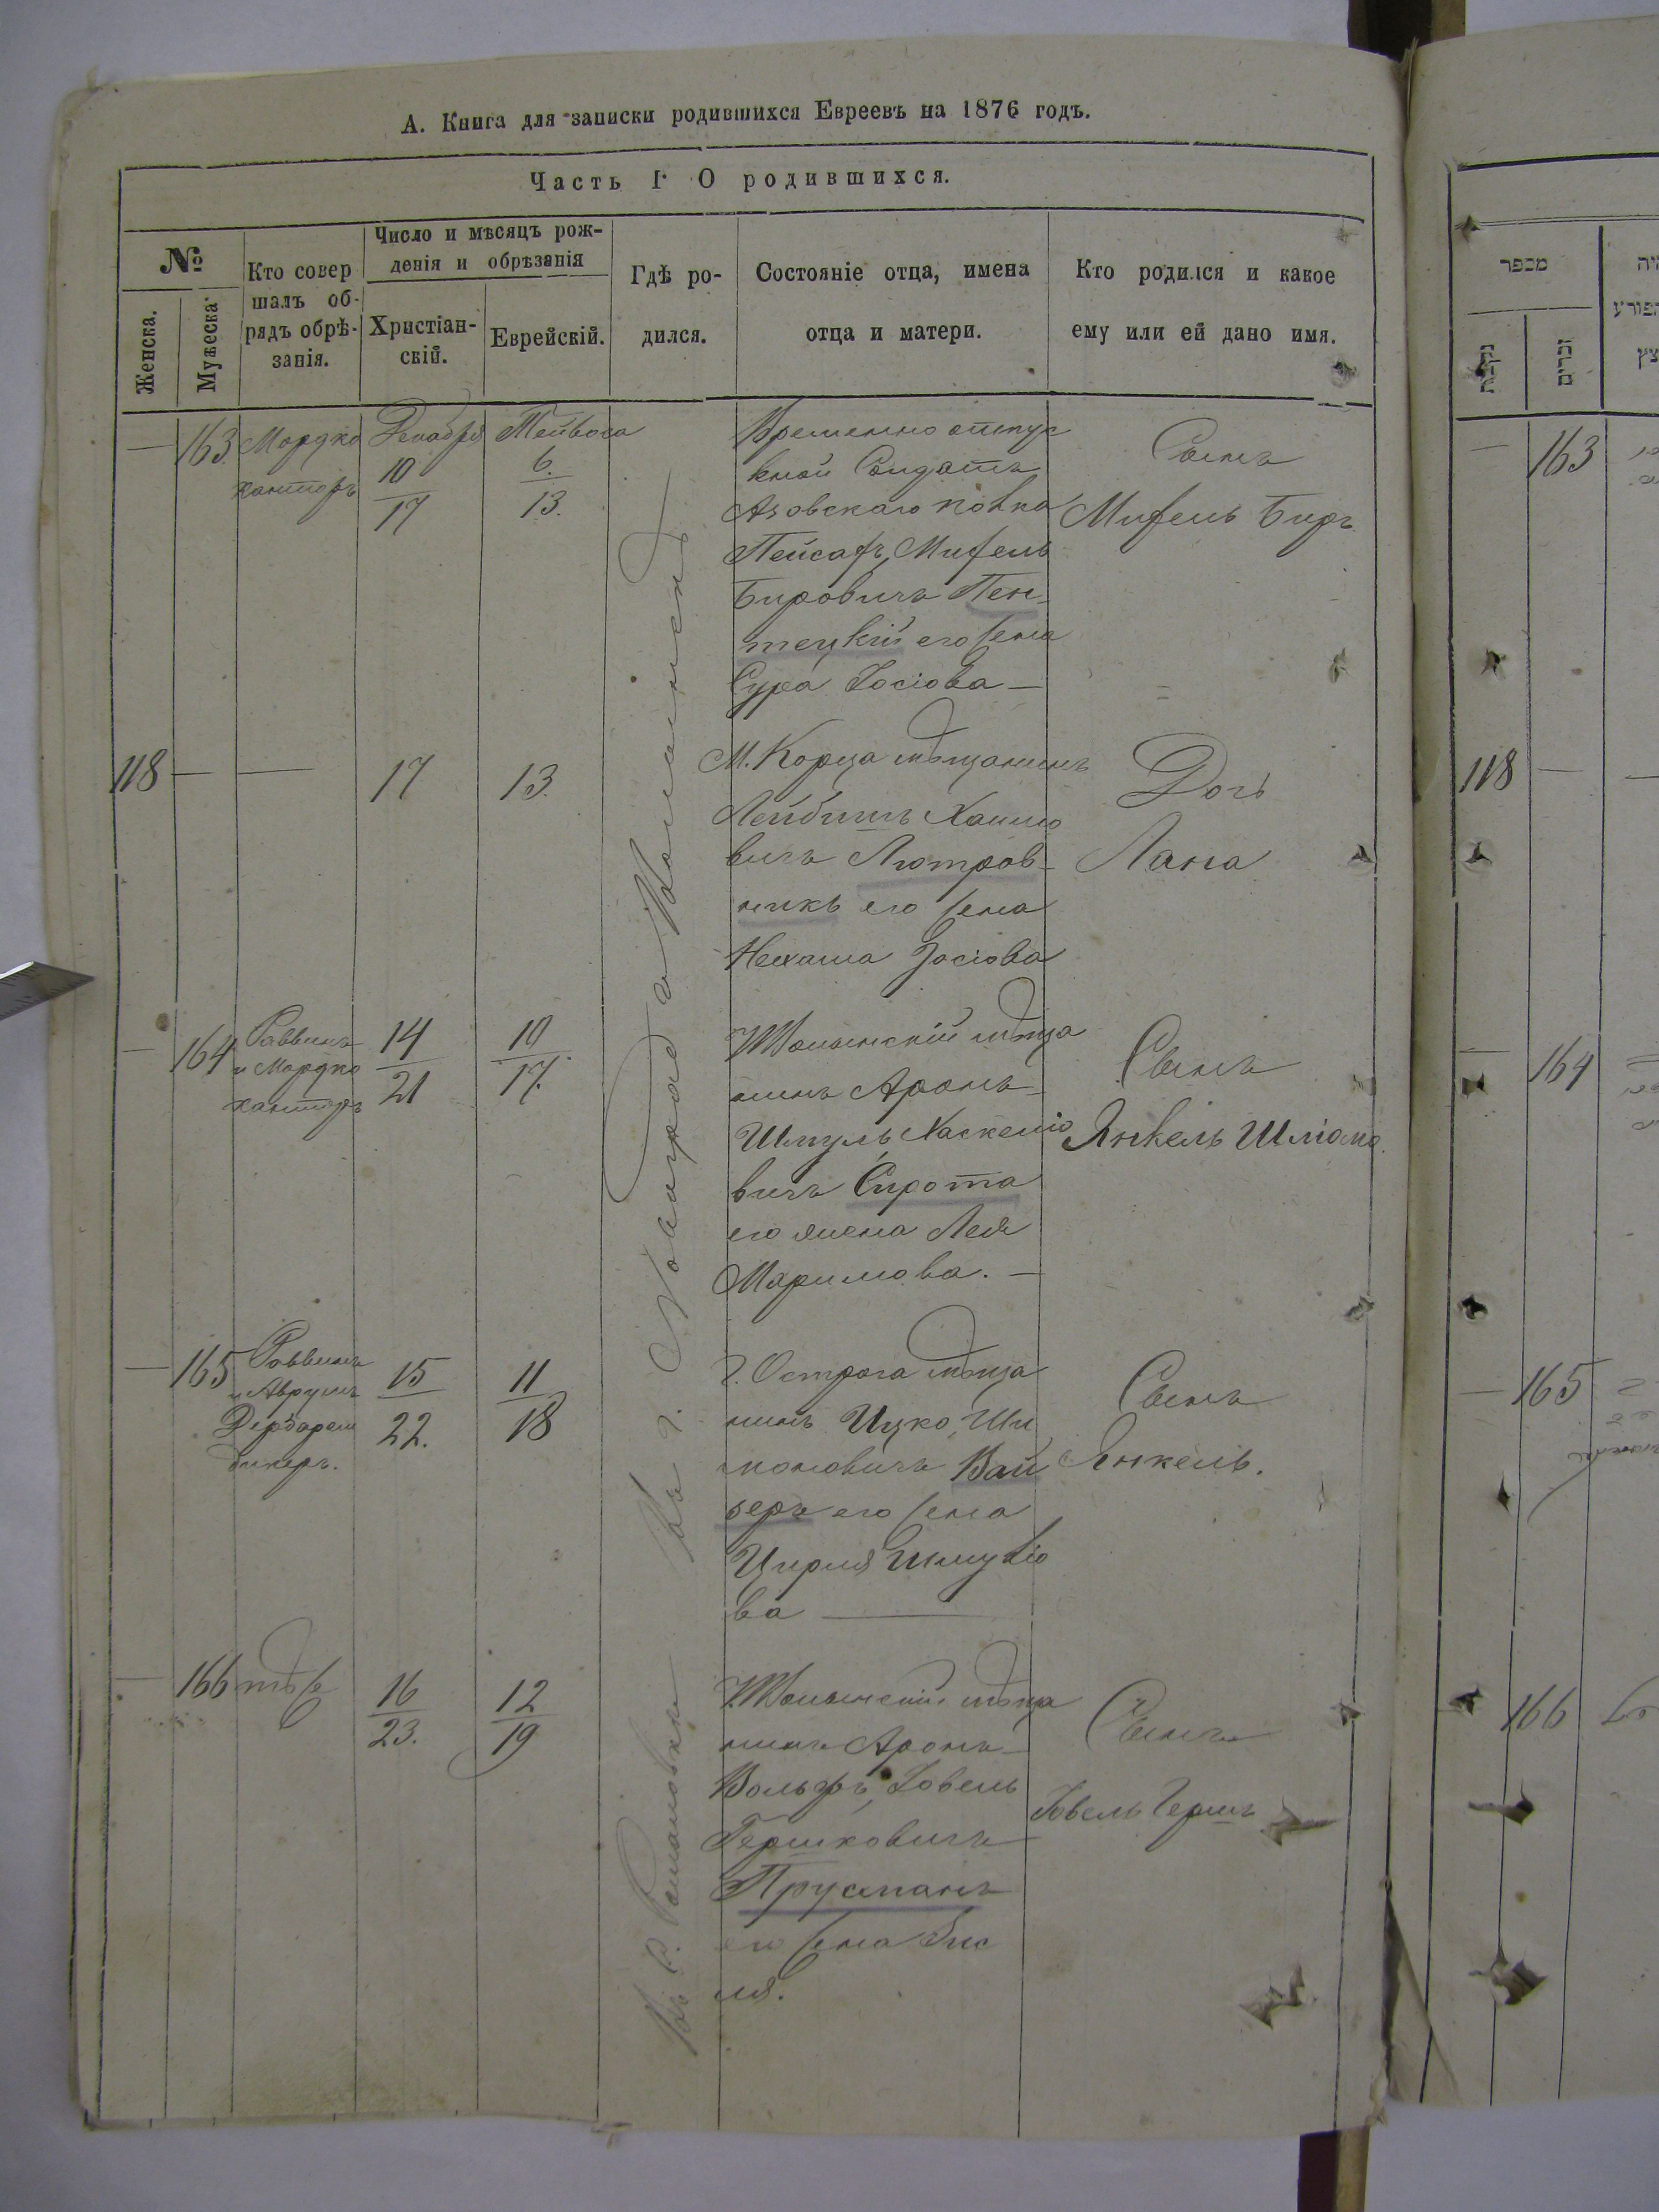 А. Книга для записки родившихся Евреевъ на 1876 годъ.
Часть I О родившихся.
№
Женска.
Мужеска
Кто совер
шалъ об-
рядъ обрѣ-
занія.
Число и мѣсяцъ рож-
денія и обрѣзанія
Христіан-
скій.
Еврейскій.
Гдѣ ро-
дился.
Состояніе отца, имена
отца и матери.
Кто родился и какое
ему или ей дано имя.
— 163
Мордко
канторъ
Декабря
10
17
Тейвеса
6.
13.
Временно отпус
кной Солдатъ
Азовскаго полка
Пейсахъ, Михель
Беровичъ Пен-
тецкій его жена
Сура Іосіова —
Сынъ
Михель Беръ
118 — —
17
13.
М. Корца мѣщанинъ
Лейбишъ Хаимо
вичъ Лютров-
никъ его жена
Нехама Іосіова
Дочь
Лана
— 164
Раввинъ
и Мордко
канторъ
14
21
10
17.
Волынскій мѣща
нинъ Аронъ-
Шмуль, Хаскеліо
вичъ Сирота
его жена Лея
Маримова. —
Сынъ
Янкель Шліома
— 165
Раввинъ
и Аврумъ
15
22.
11
18
г. Острога мѣща
нинъ Ицко, Ши
моновичъ Вай
зеръ его жена
Цирля Шмуліо
ва —
Сынъ
Янкель.
— 166
тѣже
16
23.
12
19
Волынскій мѣща
нинъ Аронъ-
Вольфъ, Іовель
Гершковичъ
Прусманъ
его жена Зис
ля.
Сынъ
Іовель Гершъ
Въ г. Новоградволынскѣ
Въ с. Романовки
מספר
נקבות
זכרים
163
118 —
164
165
166